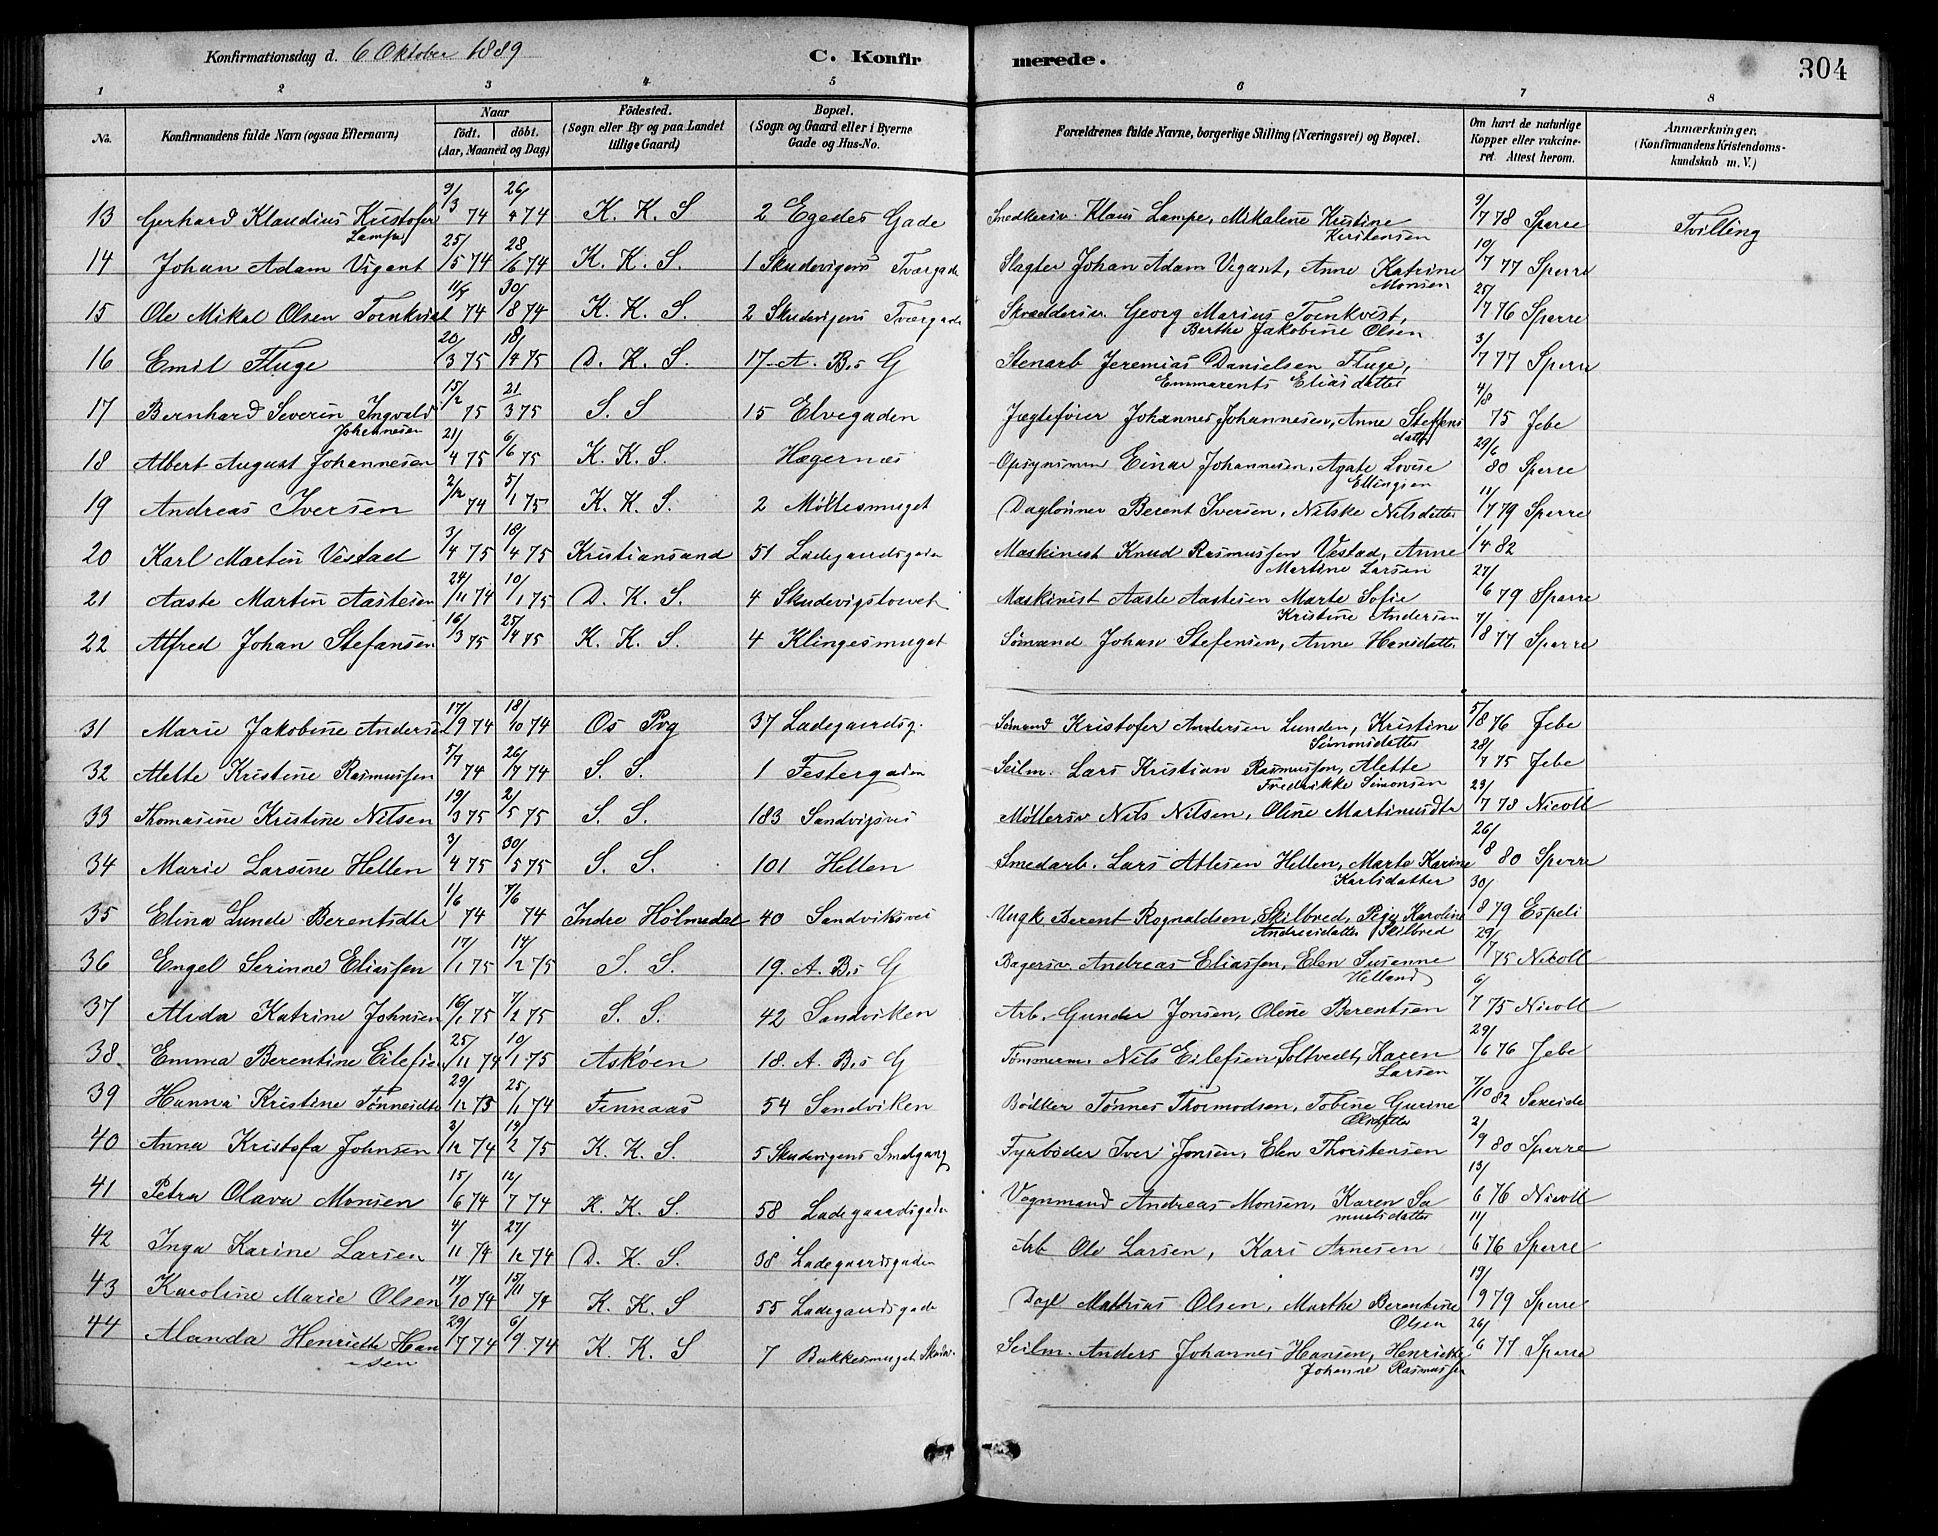 Konfirmationsdag d. 6 Oktober 1889 C. Konfirmerede. 304
1 2 3 4 5 6 7 8
No. Konfirmandens fulde Navn (ogsaa Efternavn) Naar født. døbt. (Aar, Maaned og Dag) Fødested. (Sogn eller By og paa Landet tillige Gaard) Bopæl. (Sogn og Gaard eller i Byerne Gade og Hus-No. Forældrenes fulde Navne, borgerlige Stilling (Næringsvei) og Bopæl. Om havt de naturlige Kopper eller vakcineret. Attest herom. Anmærkninger. (Konfirmandens Kristendomskundskab m. V.)
13 Gerhard Klaudius Kristofer Lampe 9/3 74 26/4 74 K. K. S 2 Egedes Gade Snedkersv. Klaus Lampe, Mikaline Kristine Kristensen 9/7 78 Sperre Tvilling
14 Johan Adam Vigant 25/5 74 28/6 74 K. K. S. 1 Skudevigens Tværgade Slagter Johan Adam Vigant, Anne Katrine Monsen 10/7 77 Sperre
15 Ole Mikal Olsen Tornkvist 74 30/8 74 K. K. S. 2 Skudevigens Tværgade Skræddersv. Georg Marius Tornkvist, Berthe Jakobine Olsen 25/7 76 Sperre
16 Emil Fluge 20/3 75 18/4 75 D. K. S. 17 A. B.s G Stenarb Jeremias Danielsen Fluge, Emmarents Eliasdatter 3/7 77 Sperre
17 Bernhard Severin Ingvald Johannesen 15/2 75 21/3 75 S. S 15 Elvegaden Jægtefører Johannes Johannesen, Anne Steffensdatter 4/8 75 Jebe
18 Albert August Johannesen 21/4 75 6/6 75 K. K. S. Hægernæs Opsynsmm Einar Johannesen, Agate Lovise Ellingsen 29/6 80 Sperre
19 Andreas Iversen 2/12 74 5/1 75 K. K. S. 2 Møllesmuget Daglønner Berent Iversen, Nilske Nilsdatter 11/7 79 Sperre
20 Karl Martin Vestad 3/4 75 18/4 75 Kristiansand 51 Ladegaardsgade Maskinist Knud Rasmussen Vestad, Anne Martine Larsen 1/4 82
21 Aaste Martin Aastesen 24/11 74 10/1 75 D. K. S. 4 Skudevigstorvet Maskinist Aaste Aastesen Marte Sofie Kristine Andersen 27/6 79 Sperre
22 Alfred Johan Stefansen 16/3 75 25/4 75 K. K. S. 4 Klingesmuget Sømand Johan Stefensen, Anne Hansdatter 7/8 77 Sperre
31 Marie Jakobine Andersen 17/9 74 18/10 74 Os Pvg 37 Ladegaardsg. Sømand Kristofer Andersen Lunden, Kristine Simonsdatter 5/8 76 Jebe
32 Alette Kristine Rasmussen 5/7 74 26/7 74 S. S. 1 Festergaden Seilm. Lars Kristian Rasmussen, Alette Fredrikke Simonsen 28/7 75 Jebe
33 Thomasine Kristine Nilsen 19/3 75 2/5 75 S. S. 183 Sandvigsvei Møllersv Nils Nilsen, Oline Martinusdtr 23/7 78 Nicoll
34 Marie Larsine Hellen 3/4 75 30/5 75 S. S. 101 Hellen Smedarb. Lars Atlesen Hellen, Marte Karine Karlsdatter 26/8 80 Sperre
35 Elina Lunde Berentsdtr 1/6 74 7/6 74 Indre Hølmedal 40 Sandviksvei Ungk Berent Rognaldsen Skilbred, Karoline Andreasdatter Skilbred 30/8 79 Espeli
36 Engel Serinne Eliassen 17/1 75 14/2 75 S. S. 19. A. B.s G Bagersv. Andreas Eliassen, Elen Susenne Helland 29/7 75 Nicoll
37 Alida Katrine Johnsen 16/1 75 7/2 75 S. S. 42 Sandviken Arb. Gunder Jonsen, Oline Berentsen 6/7 75 Nicoll
38 Emma Berentine Eilefsen 25/11 74 10/1 75 Askøen 18. A. B.s G Tømmerm. Nils Eilefsen Soltvedt, Karen Larsen 29/6 76 Jebe
39 Hanna Kristine Tønnesdtr 29/12 73 25/1 74 Finnaas 54 Sandviken Bødker Tønnes Thormodsen, Tobine Gurine Olsdatter 7/10 82 Saxeide
40 Anna Kristofa Johnsen 2/12 74 19/2 75 K. K. S. 5 Skudevigens Smalgang Fyrbøder Iver Jonsen, Elen Thorstensen 2/9 80 Sperre
41 Petra Olava Monsen 15/6 74 12/7 74 K. K. S. 58 Ladegaardsgade Vognmand Andreas Monsen, Karen Samuelsdatter 13/6 76 Nicoll
42 Inga Karine Larsen 4/11 74 27/12 74 D. K. S. 38 Ladegaardsgaden Arb Ole Larsen, Kari Arnesen 11/6 76 Sperre
43 Karoline Marie Olsen 17/10 74 15/11 74 K. K. S 55 Ladegaardsgade Dagl Mathias Olsen, Marthe Berentine Olsen 19/9 79 Sperre
44 Alanda Henriette Hansen 29/7 74 6/9 74 K. K. S 7 Bakkesmuget Skudev. Seilm. Anders Johannes Hansen, Henrikke Johanne Rasmussen 26/6 77 Sperre